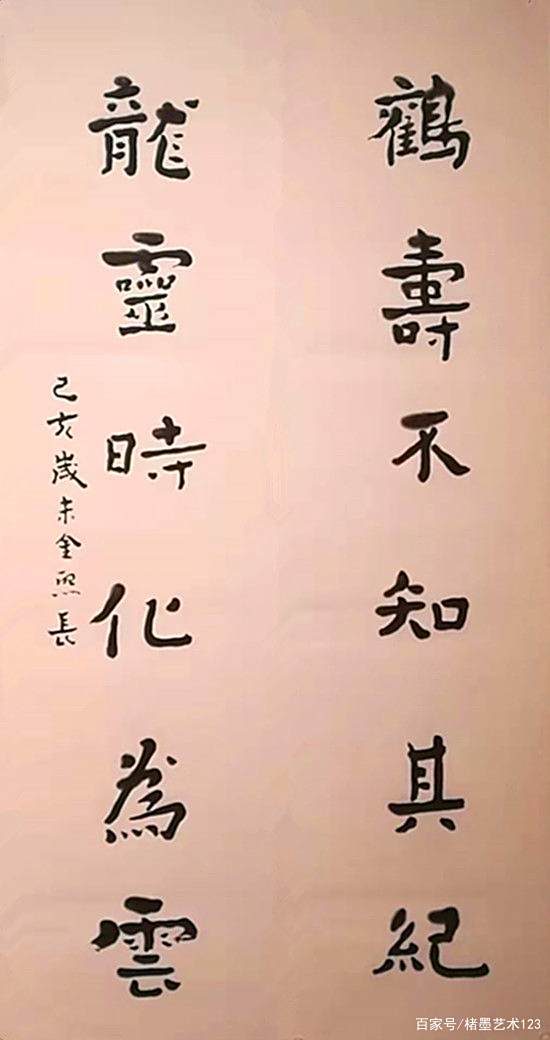 鶴壽不知其紀
龍靈時化為雲
己亥歲末金熙長
百家号/楮墨艺术123